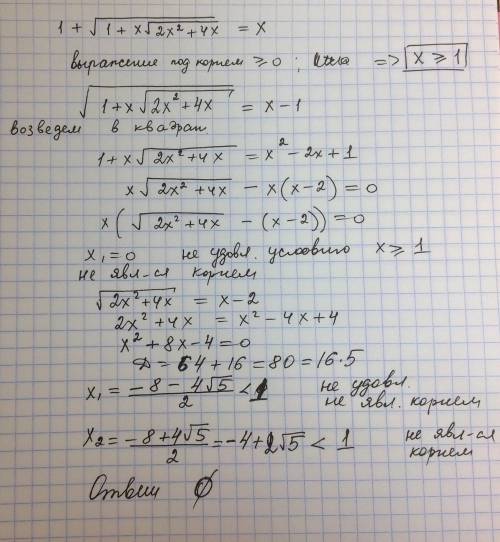 1 + √(1 + x√(2x² + 4x)) = x
выражение под корнем ≥ 0; => x ≥ 1
√(1 + x√(2x² + 4x)) = x - 1
возведем в квадрат
1 + x√(2x² + 4x) = x² - 2x + 1
x√(2x² + 4x) - x(x - 2) = 0
x(√(2x² + 4x) - (x - 2)) = 0
x₁ = 0 не удовл. условию x ≥ 1
не явл-ся корнем
√(2x² + 4x) = x - 2
2x² + 4x = x² - 4x + 4
x² + 8x - 4 = 0
D = 64 + 16 = 80 = 16·5
x₁ = (-8 - 4√5)/2 < 1 не удовл.
не явл. корнем
x₂ = (-8 + 4√5)/2 = -4 + 2√5 < 1 не явл-ся
корнем
Ответ ∅